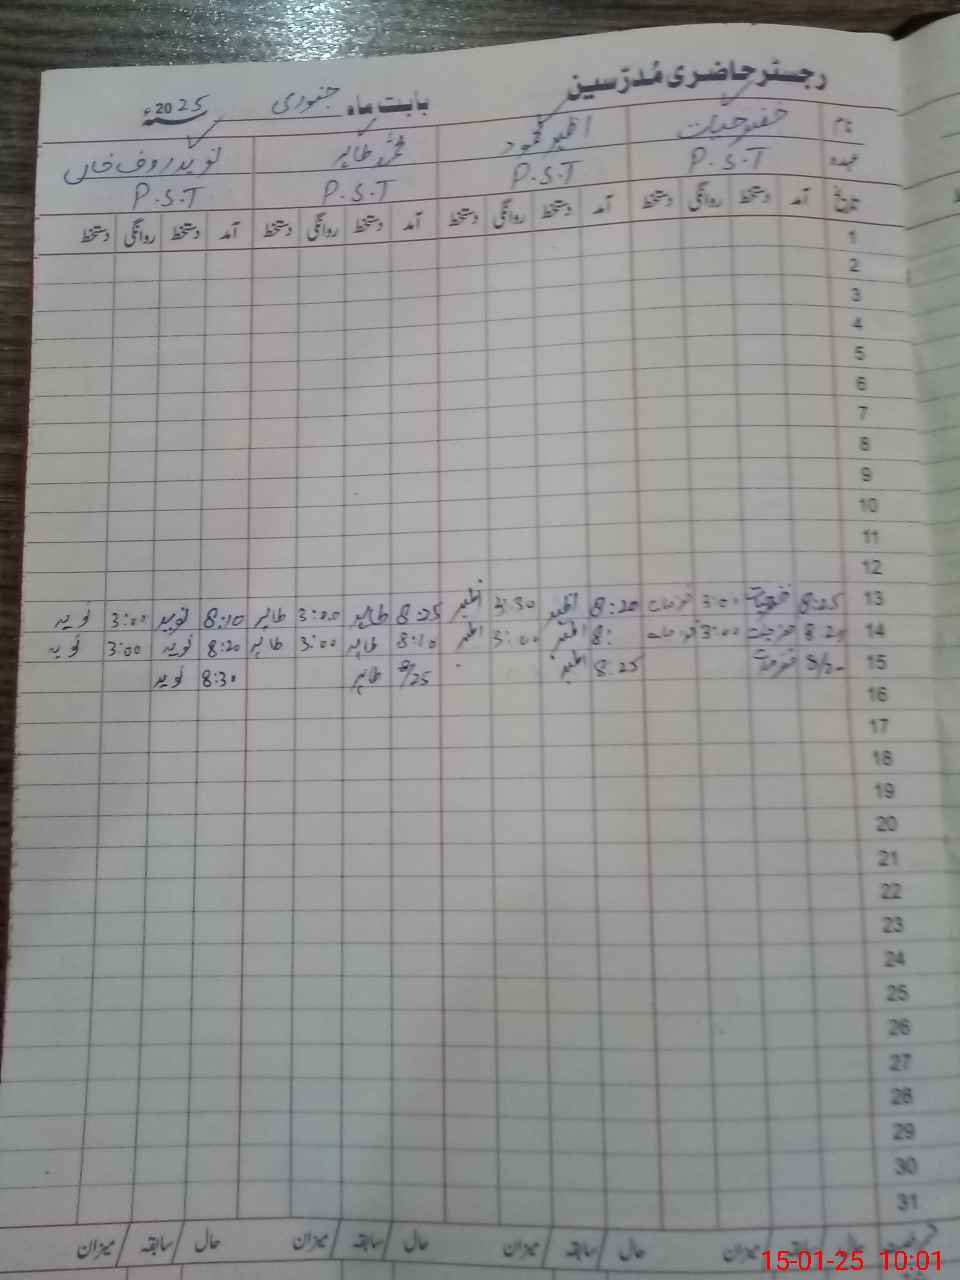 رجسٹر حاضری مُدرّسین بابت ماہ جنوری 2025ء
نام خضر حیات اظہر محمود محمد طاہر نوید رؤف خاں
عہدہ P.S.T P.S.T P.S.T P.S.T
تاریخ آمد دستخط روانگی دستخط آمد دستخط روانگی دستخط آمد دستخط روانگی دستخط آمد دستخط روانگی دستخط
1
2
3
4
5
6
7
8
9
10
11
12
13 8:25 خضر حیات 3:00 خضر حیات 8:20 اظہر 3:30 اظہر 8:25 طاہر 3:00 طاہر 8:10 نوید 3:00 نوید
14 8:20 خضر حیات 3:00 خضر حیات 8: اظہر 3:00 اظہر 8:10 طاہر 3:00 طاہر 8:20 نوید 3:00 نوید
15 خضر حیات 8:25 اظہر 8/25 طاہر 8:30 نوید
16
17
18
19
20
21
22
23
24
25
26
27
28
29
30
31
حال / سابقہ / میزان حال / سابقہ / میزان حال / سابقہ / میزان حال / سابقہ / میزان
15-01-25 10:01